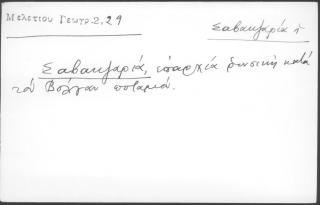 Μελετίου Γεωγρ. 2, 29
Σαβακχαρία ἡ
Σαβακχαρία, ἐπαρχία δυσικὴ κατὰ
τὸν Βόλγαν ποταμό.